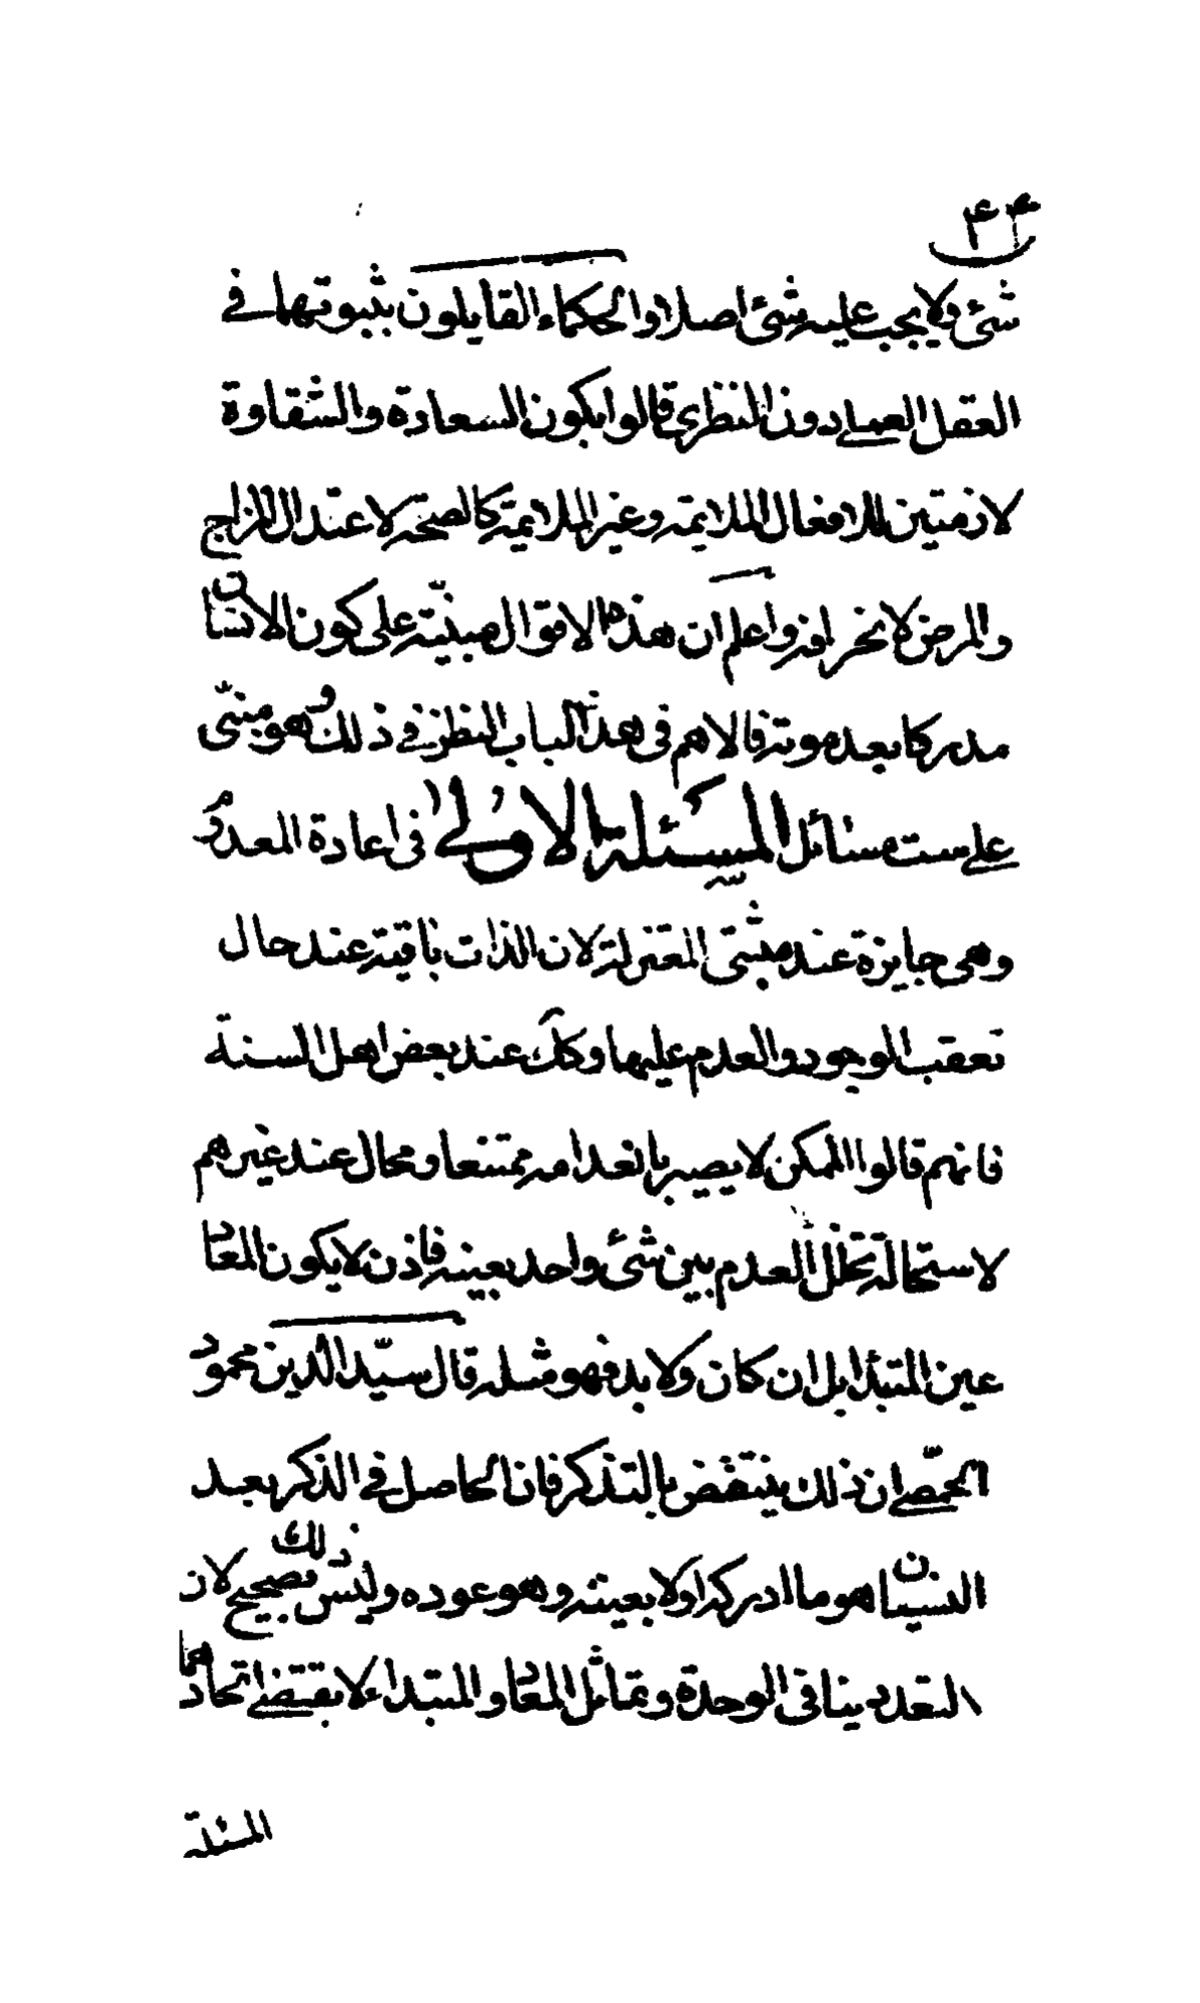 ۴۴
شئ ولا يجب عليه شئ اصلا والحكماء القايلون بثبوتهما في
العقل العملي دون النظري قالوا بكون السعادة والشقاوة
لازمتين للافعال الملايمة وغير الملايمة كالصحة لاعتدال المزاج
والمرض لانحرافه واعلم ان هذه الاقوال مبنيّة على كون الانسان
مدركا بعد موته فالاهم فى هذا الباب النظر في ذلك وهو مبنىّ
على ست مسائل المسئلة الاولى فى اعادة المعدوم
وهى جايزة عند مثبتى المعتزلة لان الذات باقية عند حال
تعقب الوجود والعدم عليها وكك عند بعض اهل السنة
فانهم قالوا الممكن لا يصير بانعدامه ممتنعا ومحال عند غيرهم
لاستحالة تخلل العدم بين شئ واحد بعينه فاذن لا يكون المعاد
عين المبتدأ بل ان كان ولا بد فهو مثله قال سيّد الدين محمود
الحمّصي ان ذلك ينتقض بالتذكر فان الحاصل في الذكر بعد
النسيان هو ما ادرك اولا بعينه وهو عوده وليس ذلك بصحيح لان
التعدد ينافى الوحدة وتماثل المعاد والمبتداء لا يقتضي اتحادهما
المسئلة